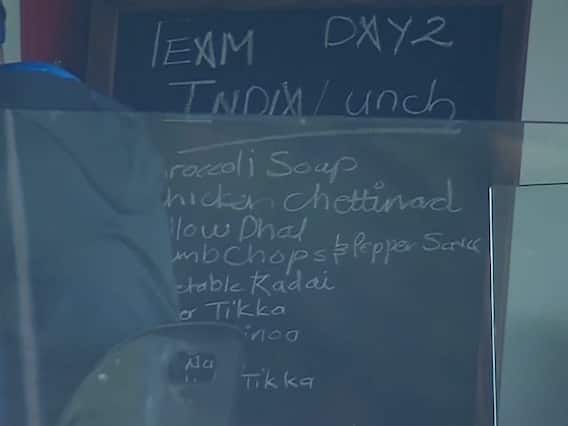 TEAM DAY2
INDIA Lunch
roccoli Soup
hicken Chettinad
llow Dhal
mb Chops & Pepper Sauce
etable Kadai
or Tikka
inoo
Na
Tikka